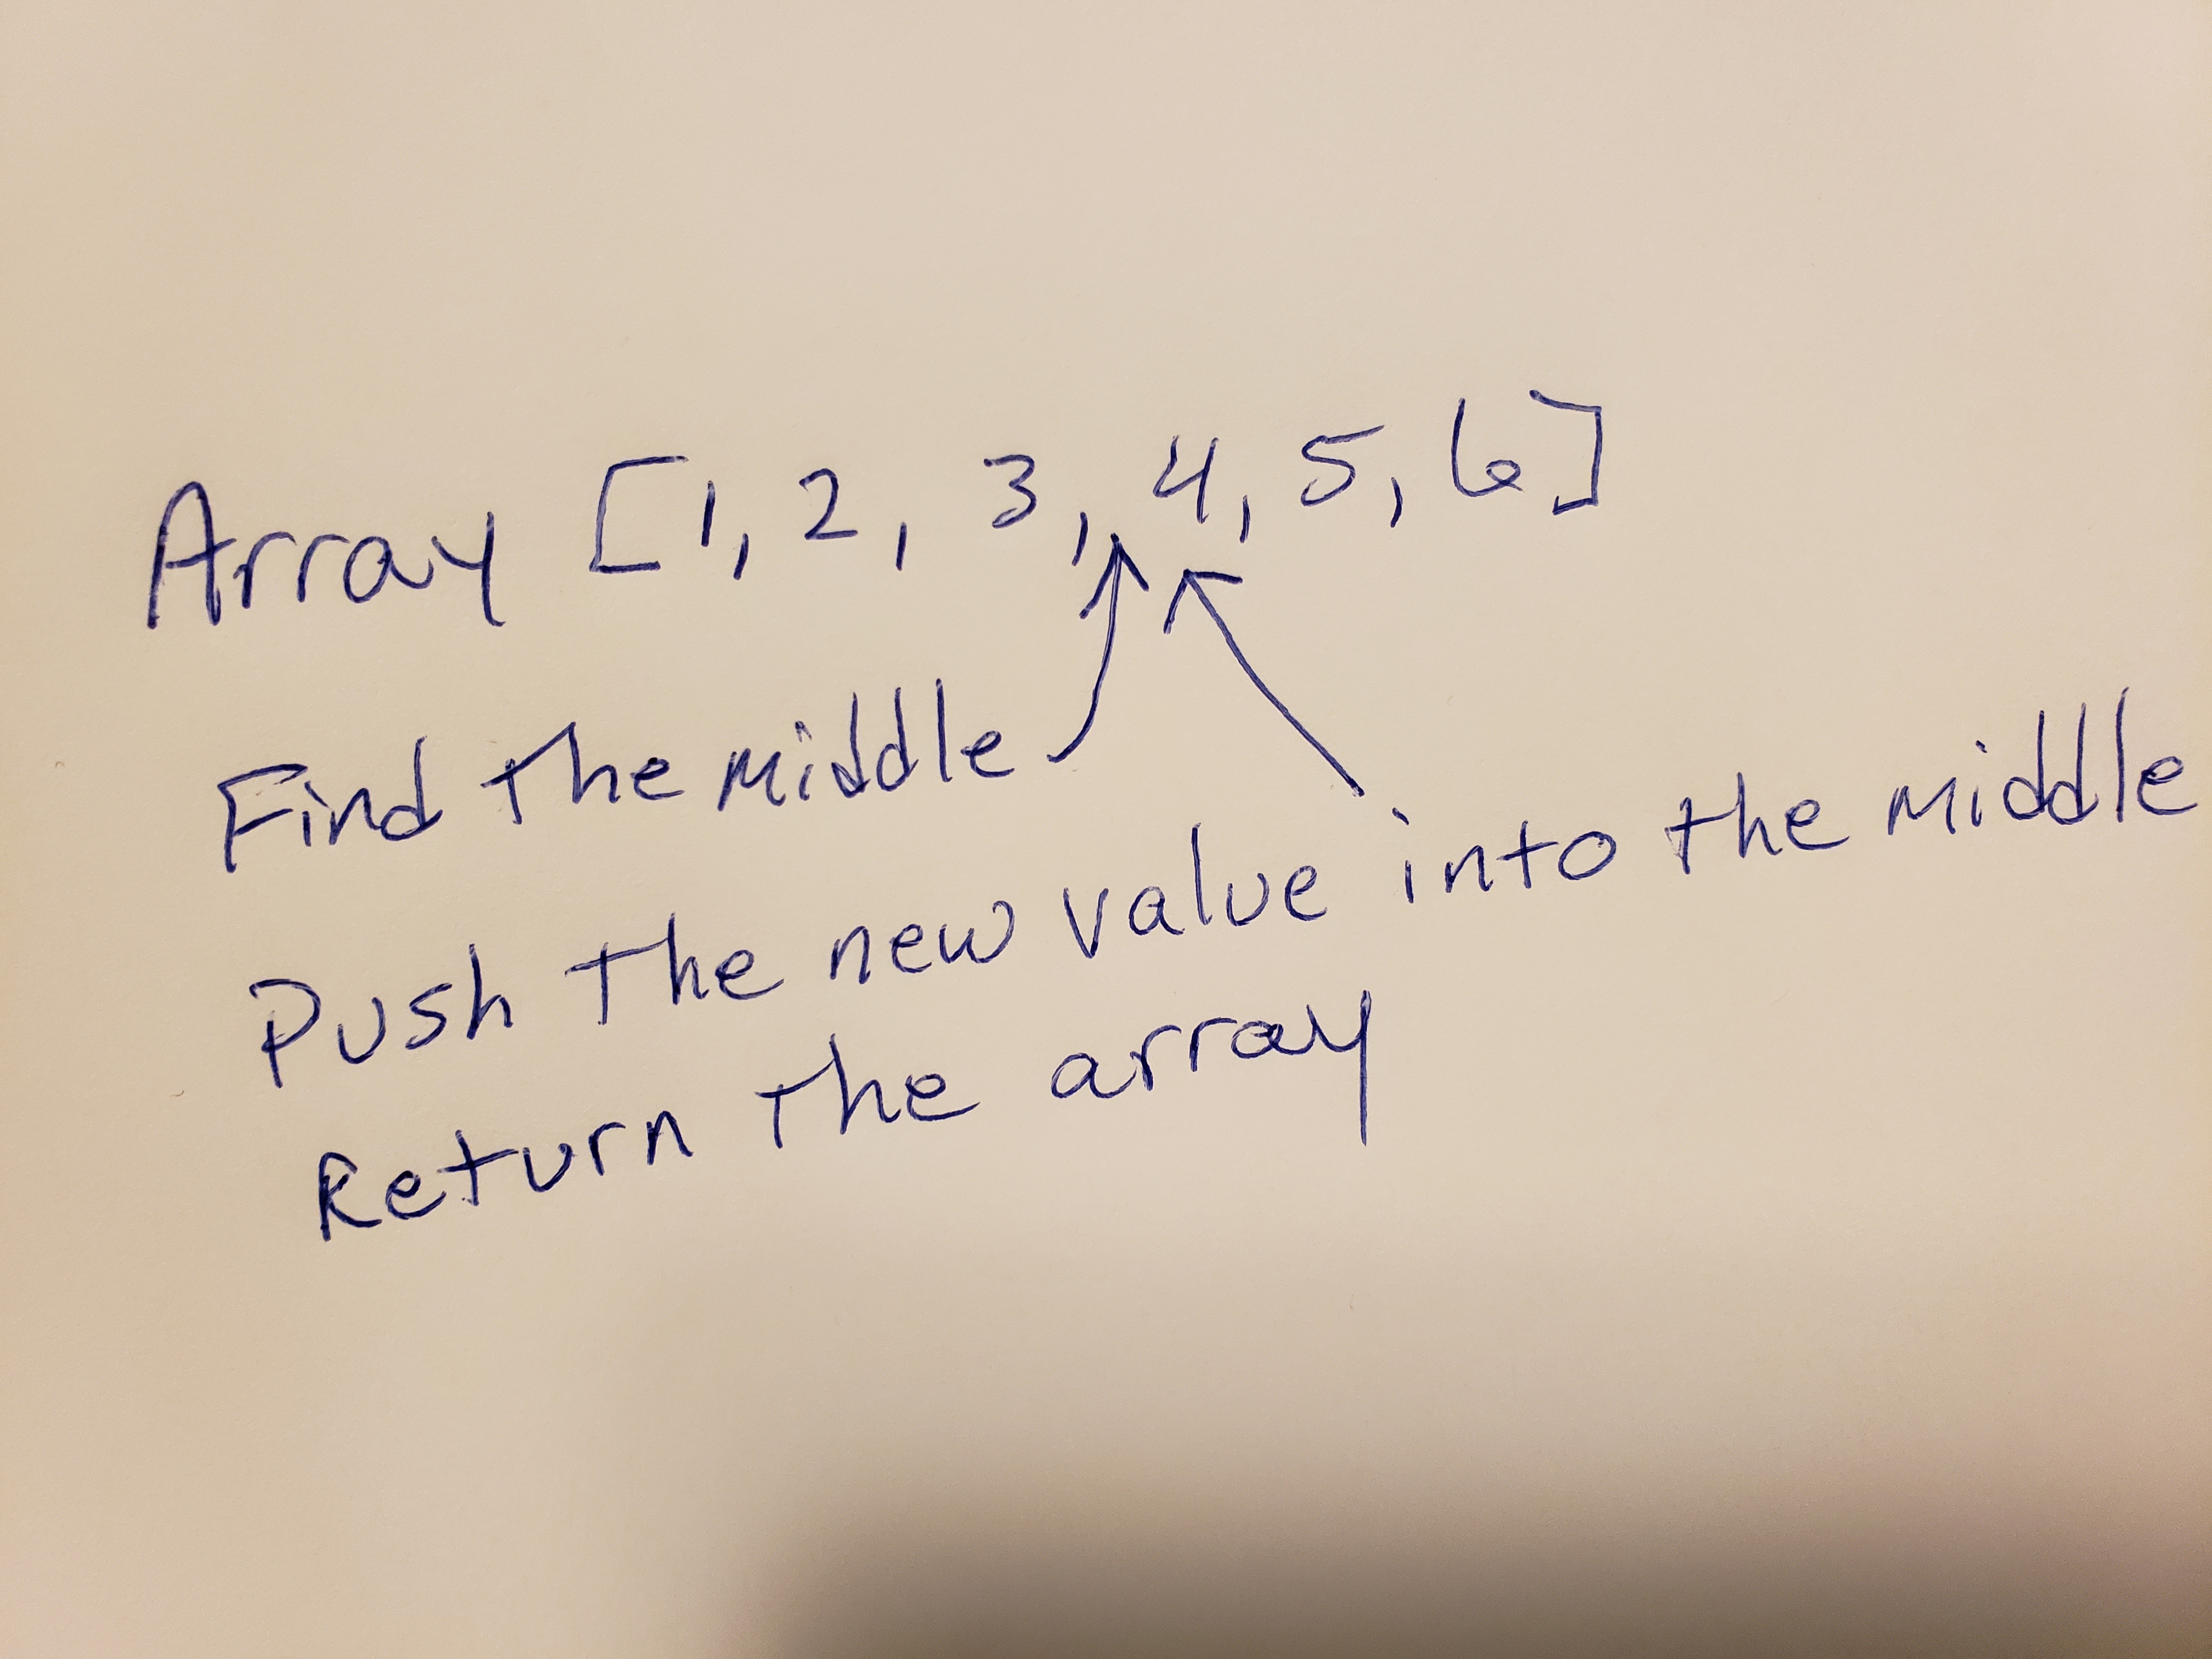 Array [1, 2, 3, 4, 5, 6]
Find the middle
Push the new value into the middle
Return the array